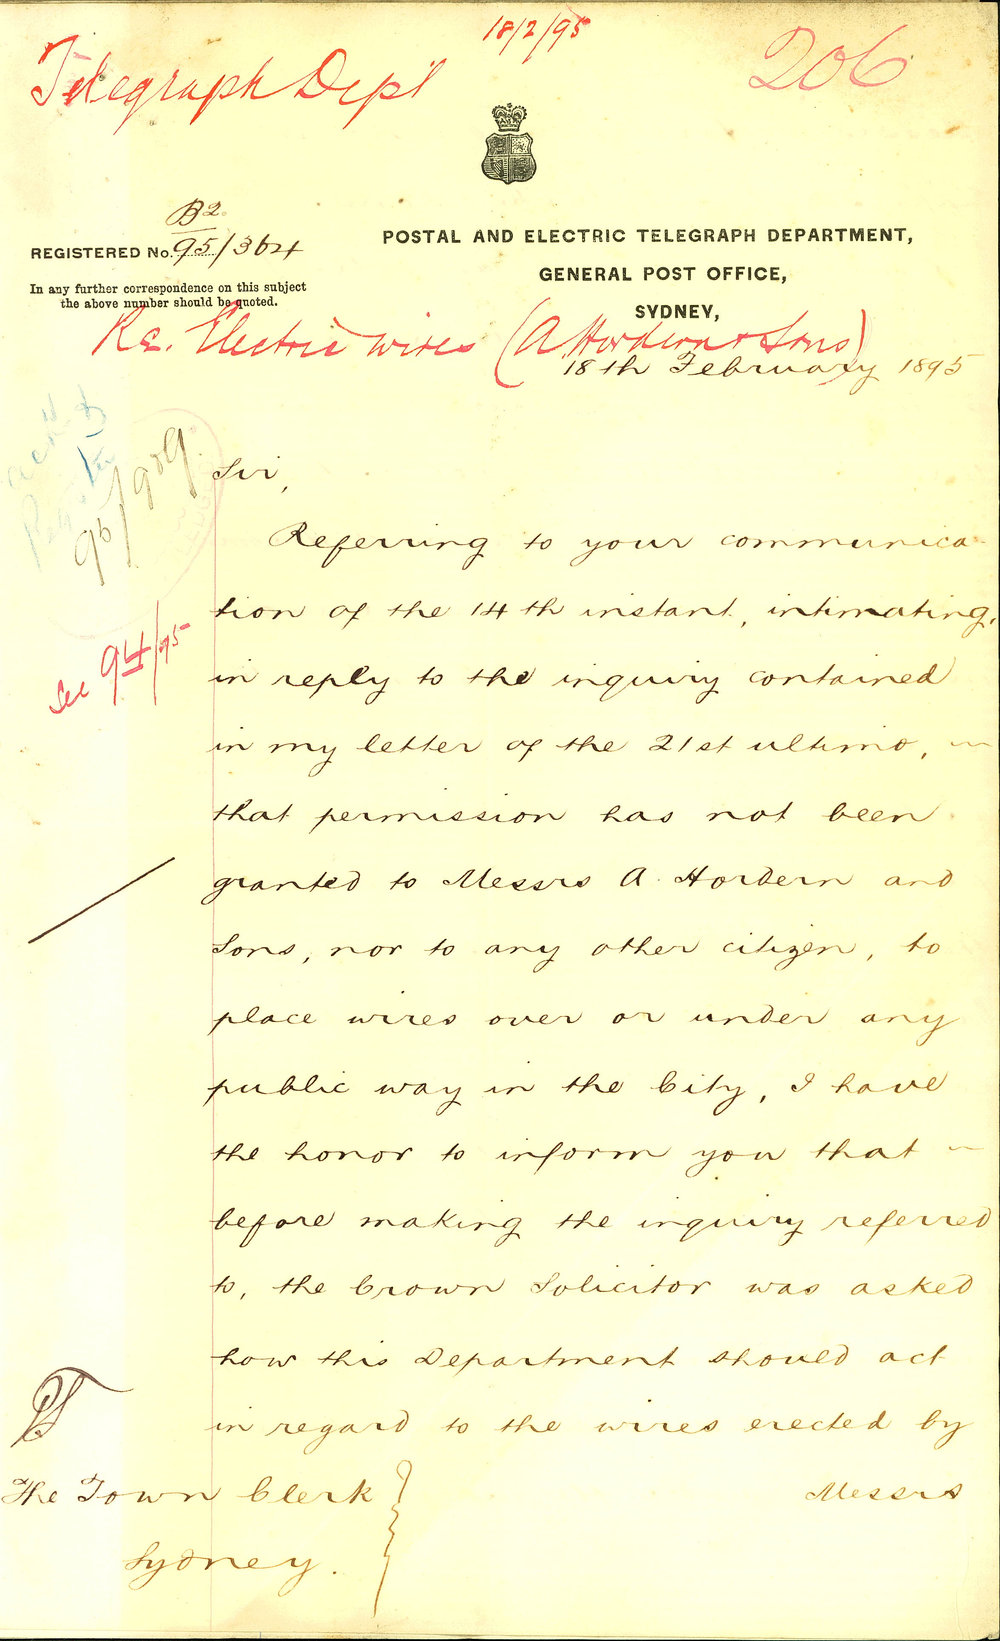 18/2/95
Telegraph Dept
206
B2
REGISTERED No. 95/364
In any further correspondence on this subject
the above number should be quoted.
POSTAL AND ELECTRIC TELEGRAPH DEPARTMENT,
GENERAL POST OFFICE,
SYDNEY,
Re. Electric wires (A Hordern & Sons)
18th February 1895
95/909.
See 94/95
Sir,
Referring to your communica-
tion of the 14th instant, intimating,
in reply to the inquiry contained
in my letter of the 21st ultimo,
that permission has not been
granted to Messrs A. Hordern and
Sons, nor to any other citizen, to
place wires over or under any
public way in the City, I have
the honor to inform you that
before making the inquiry referred
to, the Crown Solicitor was asked
how this Department should act
in regard to the wires erected by
Messrs
The Town Clerk
Sydney.